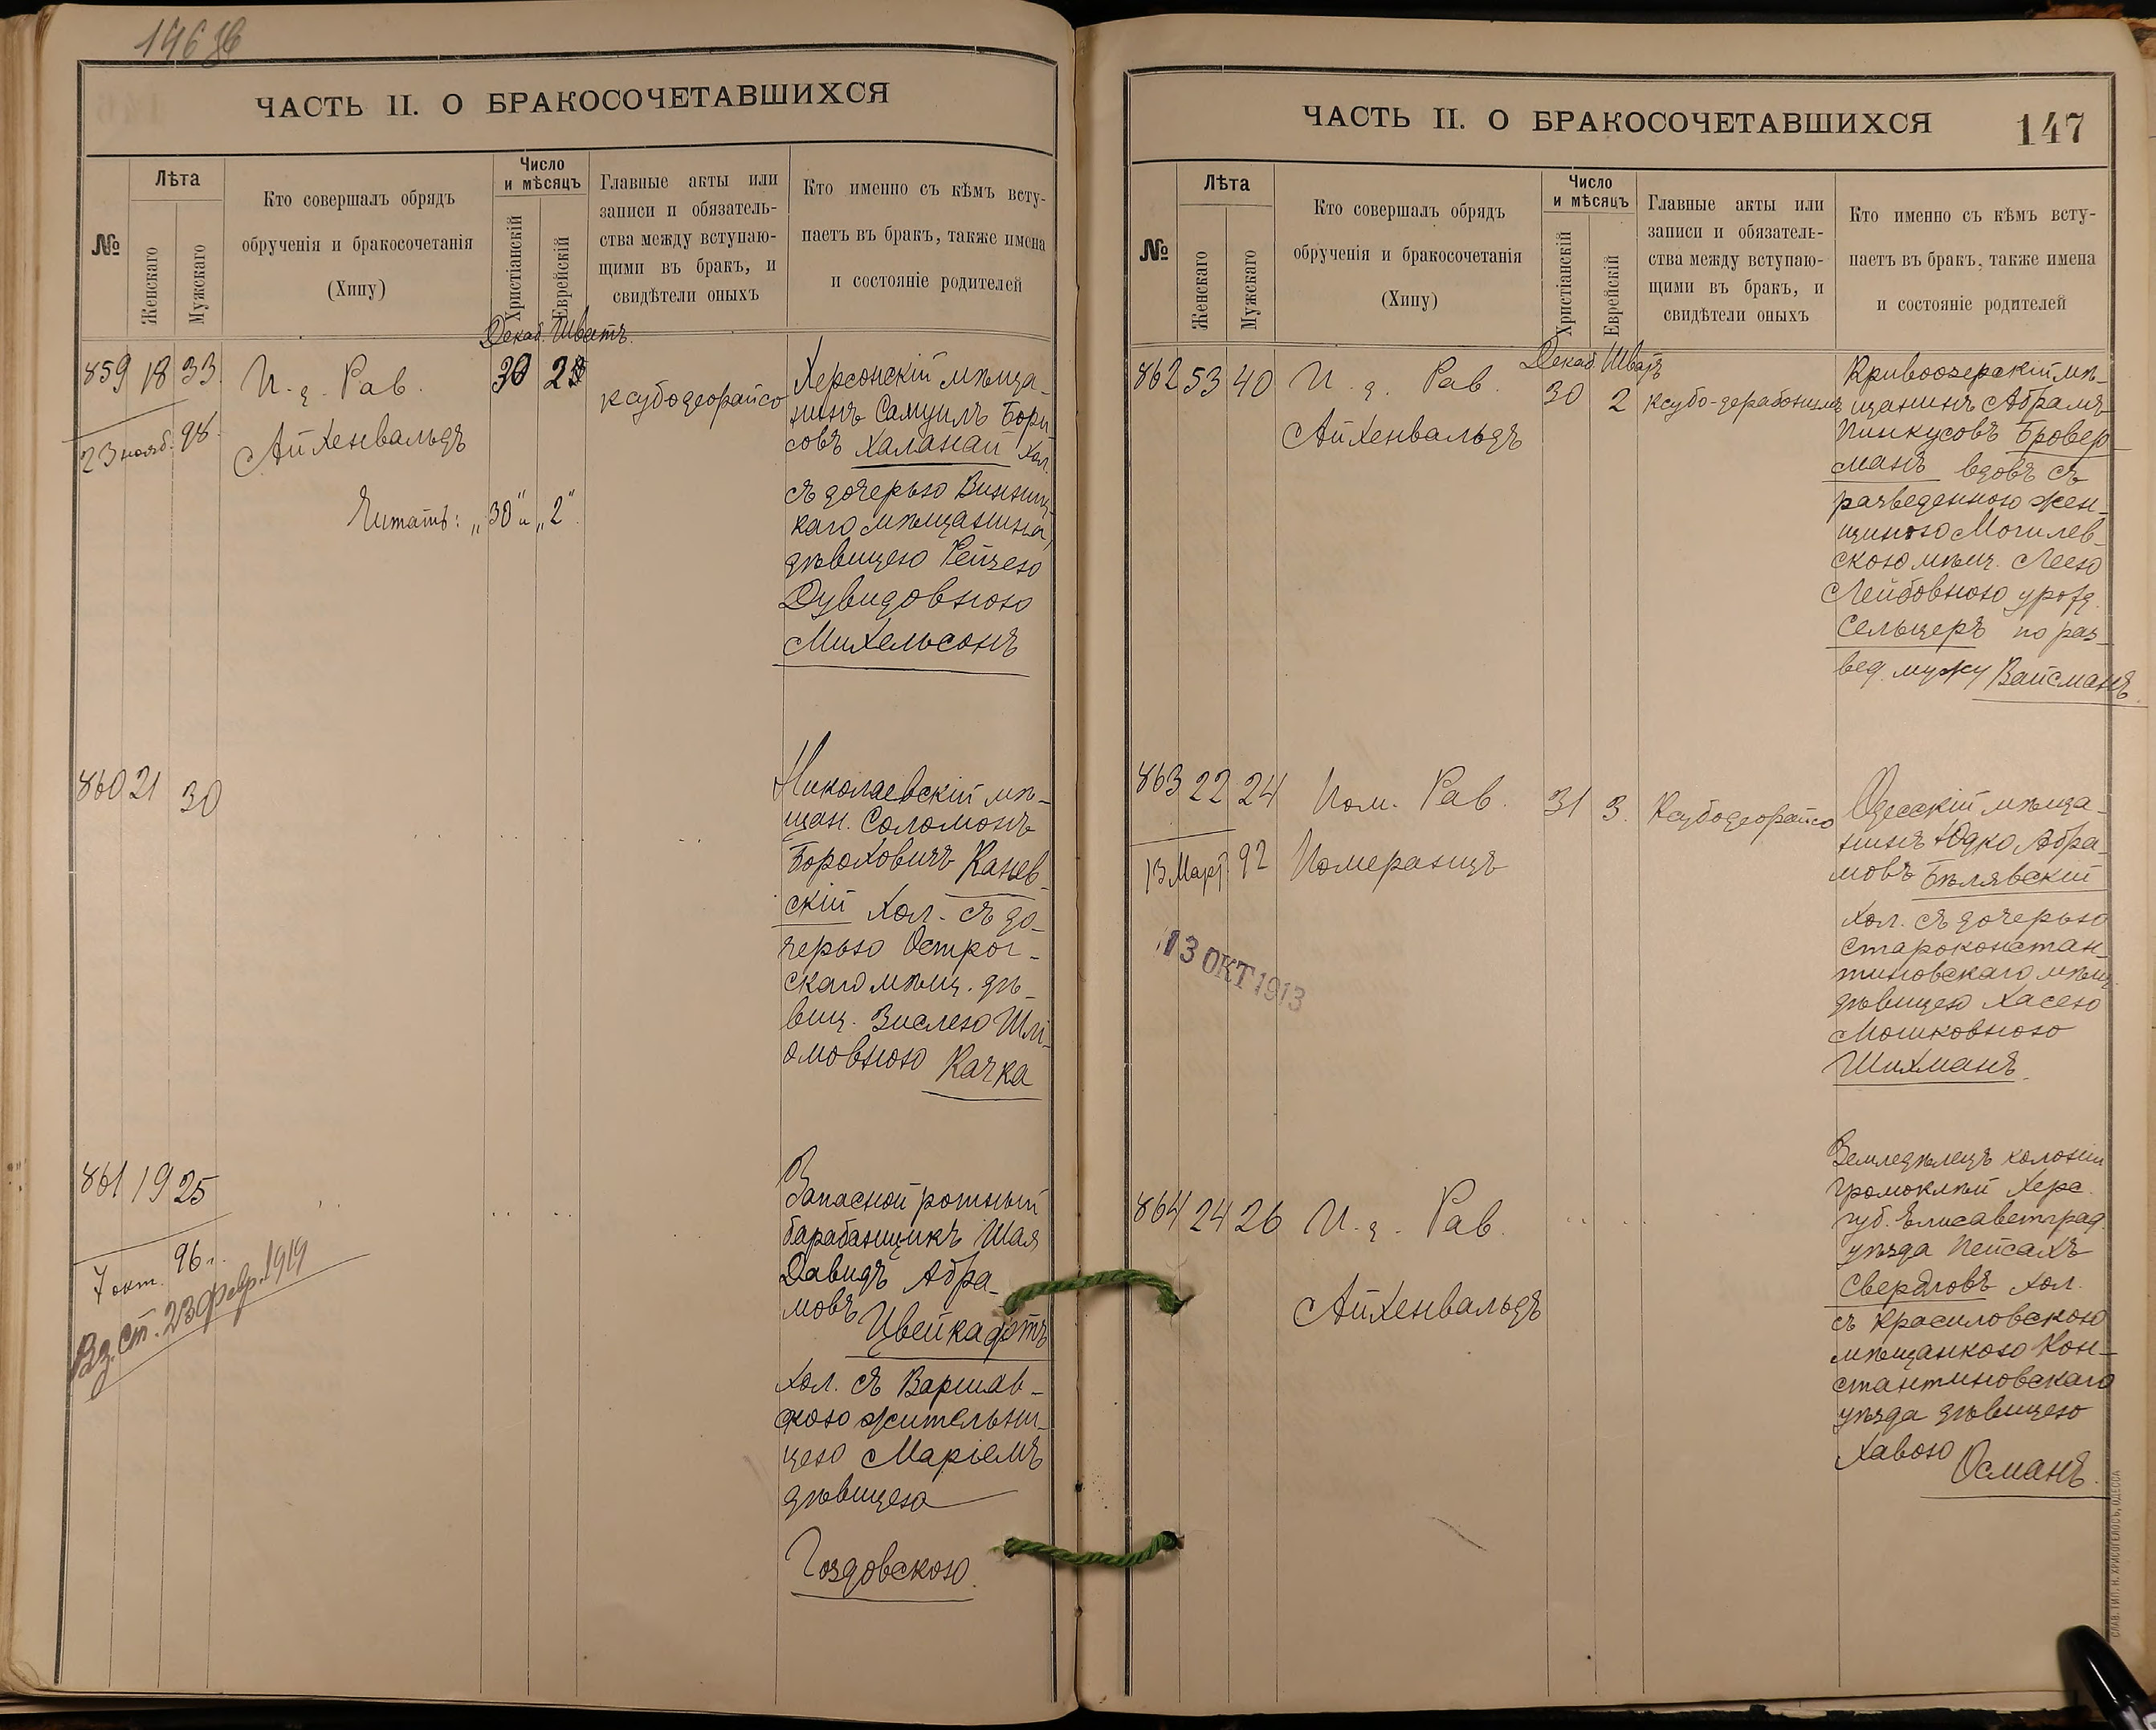 146
ЧАСТЬ II. О БРАКОСОЧЕТАВШИХСЯ
№
Лѣта
Женскаго
Мужскаго
Кто совершалъ обрядъ
обрученія и бракосочетанія
(Хипу)
Число
и мѣсяцъ
Христіанскій
Еврейскій
Главные акты или
записи и обязатель-
ства между вступаю-
щими въ бракъ, и
свидѣтели оныхъ
Кто именно съ кѣмъ всту-
паетъ въ бракъ, также имена
и состояніе родителей
Декаб. Шватъ.
859 18 33. И. д. Рав. 30 2 ксубодеорайсо
23 нояб. 98.
Айхенвальдъ
Читать: „30“ и „2“.
Херсонскій мѣща-
нинъ Самуилъ Бори-
совъ Халанай хол.
съ дочерью Винниц-
каго мѣщанина,
дѣвицею Рейзею
Дувидовною
Михельсонъ
860 21 30
Николаевскій мѣ-
щан. Соломонъ
Бороховичъ Канев-
скій хол. съ до-
черью Острог-
скаго мѣщ. дѣ-
виц. Зислею Шлі-
омовною Качка
861 19 25
7 окт. 96 г.
Вз. ст. 23 февр. 1919
Запасной ротный
барабанщикъ Шая
Давидъ Абра-
мовъ Цвейкафтъ
хол. съ Варшав-
скою жительни-
цею Маріемъ
дѣвицею
Гоздовскою.
ЧАСТЬ II. О БРАКОСОЧЕТАВШИХСЯ
147
№
Лѣта
Женскаго
Мужскаго
Кто совершалъ обрядъ
обрученія и бракосочетанія
(Хипу)
Число
и мѣсяцъ
Христіанскій
Еврейскій
Главные акты или
записи и обязатель-
ства между вступаю-
щими въ бракъ, и
свидѣтели оныхъ
Кто именно съ кѣмъ всту-
паетъ въ бракъ, также имена
и состояніе родителей
Декаб. Шватъ
862 53 40 И. д. Рав. 30 2 ксубо-дерабонимъ
Айхенвальдъ
Кривоозерскій мѣ-
щанинъ Абрамъ
Пинкусовъ Бровер-
манъ вдовъ съ
разведенною жен-
щиною Могилев-
скою мѣщ. Леею
Лейбовною урожд.
Сельцеръ по раз-
вед. мужу Вайсманъ.
863 22 24 Пом. Рав. 31 3. Ксубодеорайсо
13 Март 92 Померанцъ
13 ОКТ 1913
Одесскій мѣща-
нинъ Юдко Абра-
мовъ Бѣлявскій
хол. съ дочерью
Староконстан-
тиновскаго мѣщ.
дѣвицею Хасею
Мошковною
Шихманъ.
864 24 26 И. д. Рав.
Айхенвальдъ
Земледѣлецъ колоніи
Громоклѣй Херс.
губ. Елисаветград.
уѣзда Пейсахъ
Свердловъ хол.
съ Красиловскою
мѣщанкою Кон-
стантиновскаго
уѣзда дѣвицею
Хавою Османъ.
СЛАВ. ТИП. Н. ХРИСОГЕЛОСЪ, ОДЕССА